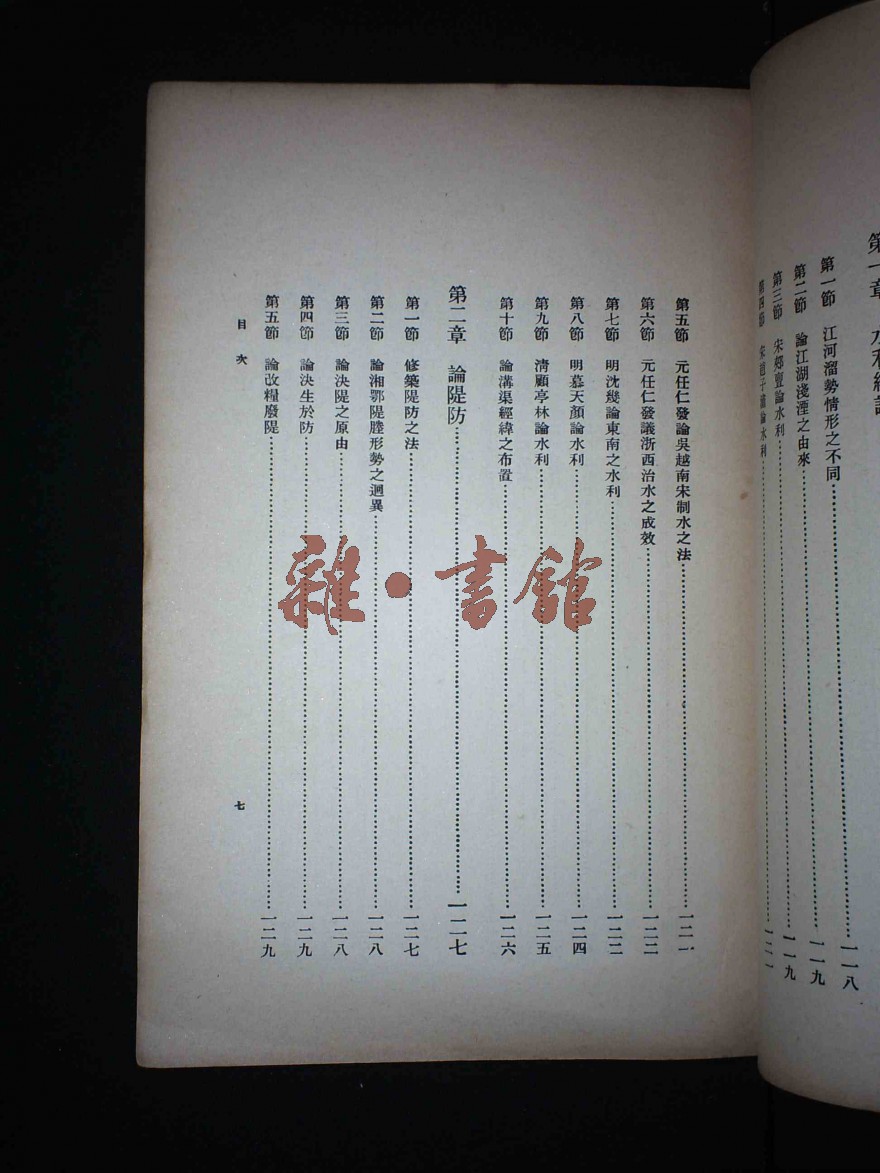 第一節 江河溜勢情形之不同……一一八
第二節 論江湖淺湮之由來……一一九
第三節 宋郟亶論水利……一一九
第五節 元任仁發論吳越南宋制水之法……一二一
第六節 元任仁發議浙西治水之成效……一二二
第七節 明沈幾論東南之水利……一二二
第八節 明慕天顏論水利……一二四
第九節 清顧亭林論水利……一二五
第十節 論溝渠經緯之布置……一二六
第二章 論隄防……一二七
第一節 修築隄防之法……一二七
第二節 論湘鄂隄塍形勢之迥異……一二八
第三節 論決隄之原由……一二八
第四節 論決生於防……一二九
第五節 論改糧廢隄……一二九
目次
七
雜·書館